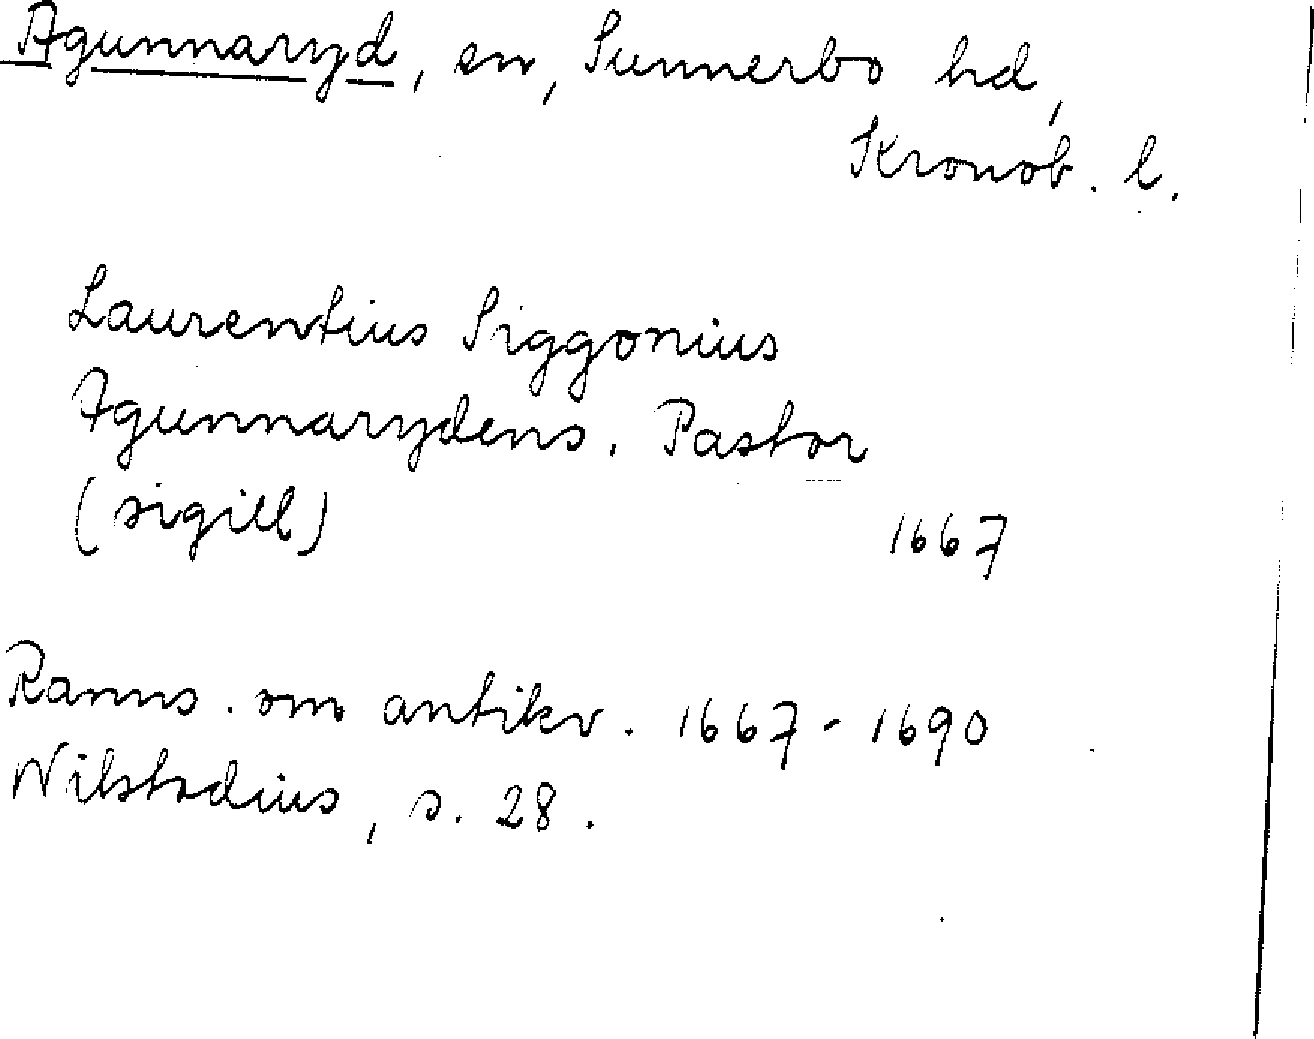 Agunnaryd, sn, Sunnerbo hd,
Kronob. l.
Laurentius Siggonius
Agunnarydens. Pastor
(sigill)
1667
Ranns. om antikv. 1667-1690
Wilstadius, s. 28.